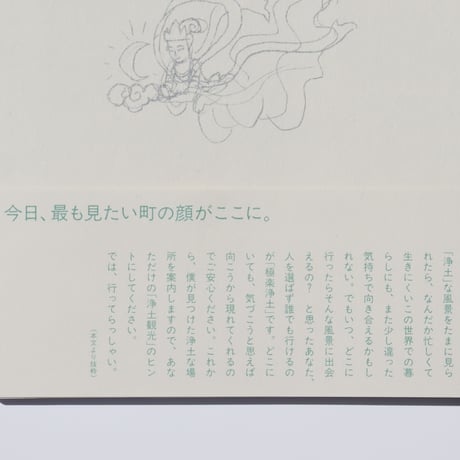 今日、最も見たい町の顔がここに。
「浄土」な風景をたまに見ら
れたら、なんだか忙しくて
生きにくいこの世界での暮
らしにも、また少し違った
気持ちで向き合えるかもし
れない。でもいつ、どこに
行ったらそんな風景に出会
えるの？ と思ったあなた、
人を選ばず誰でも行けるの
が「極楽浄土」です。どこに
いても、気づこうと思えば
向こうから現れてくれるの
でご安心ください。これか
ら、僕が見つけた浄土な場
所を案内しますので、あな
ただけの「浄土観光」のヒン
トにしてください。
では、行ってらっしゃい。
（本文より抜粋）